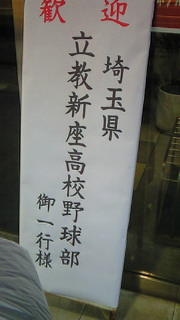 歓迎
埼玉県
立教新座高校野球部
御一行様